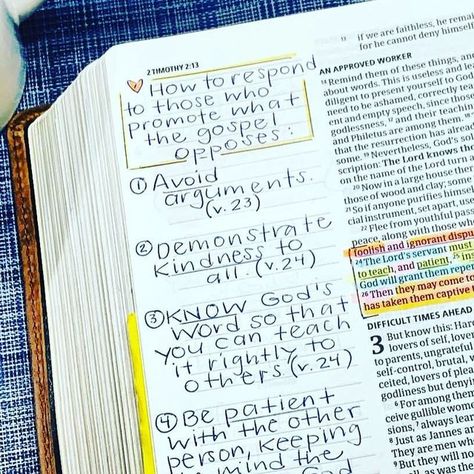 2 TIMOTHY 2:13
How to respond
to those who
promote what
the gospel
opposes:
① Avoid
arguments.
(v. 23)
② Demonstrate
kindness to
all. (v. 24)
③ KNOW God's
word so that
you can teach
it rightly to
others (v. 24)
④ Be patient
with the other
person, keeping
in mind the
if we are faithless, he rema
for he cannot deny himself
AN APPROVED WORKER
14 Remind them of these things, an
about words. This is useless and le
diligent to present yourself to God
need to be ashamed, correctly tea
ent and empty speech, since those
godlessness, 17 and their teaching
and Philetus are among them. 18
that the resurrection has already
some. 19 Nevertheless, God's so
scription: The Lord knows
on the name of the Lord turn
20 Now in a large house the
those of wood and clay; some
21 So if anyone purifies himse
cial instrument, set apart, use
22 Flee from youthful pass
peace, along with those wh
foolish and ignorant dispu
24 The Lord's servant must
to teach, and patient, 25 ins
God will grant them repen
26 Then they may come to
has taken them captive t
DIFFICULT TIMES AHEAD
3 But know this: Hard
lovers of self, love
to parents, ungratef
self-control, brutal,
ceited, lovers of plea
godliness but denyi
6 For among them
ceive gullible wome
sions, 7 always learn
8 Just as Jannes and
They are men who
But they will not